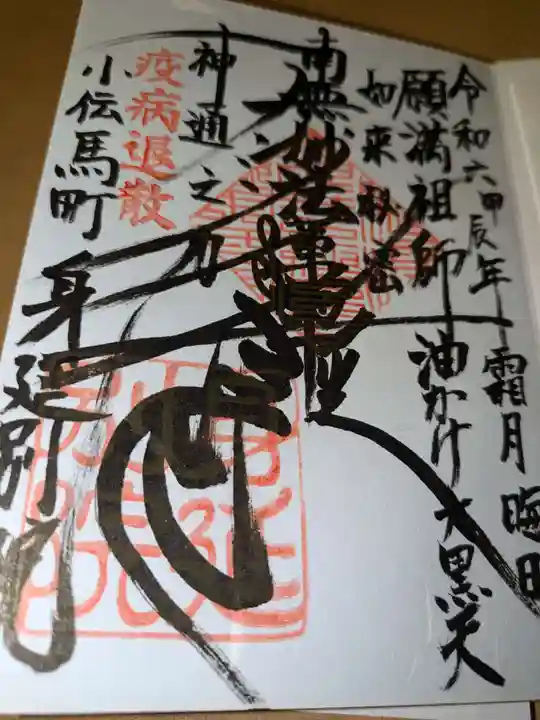 令和六甲辰年 霜月 晦日
願満祖師 油かけ大黒天
如来秘密
南無妙法蓮華経
神通之力
疫病退散
小伝馬町 身延別院